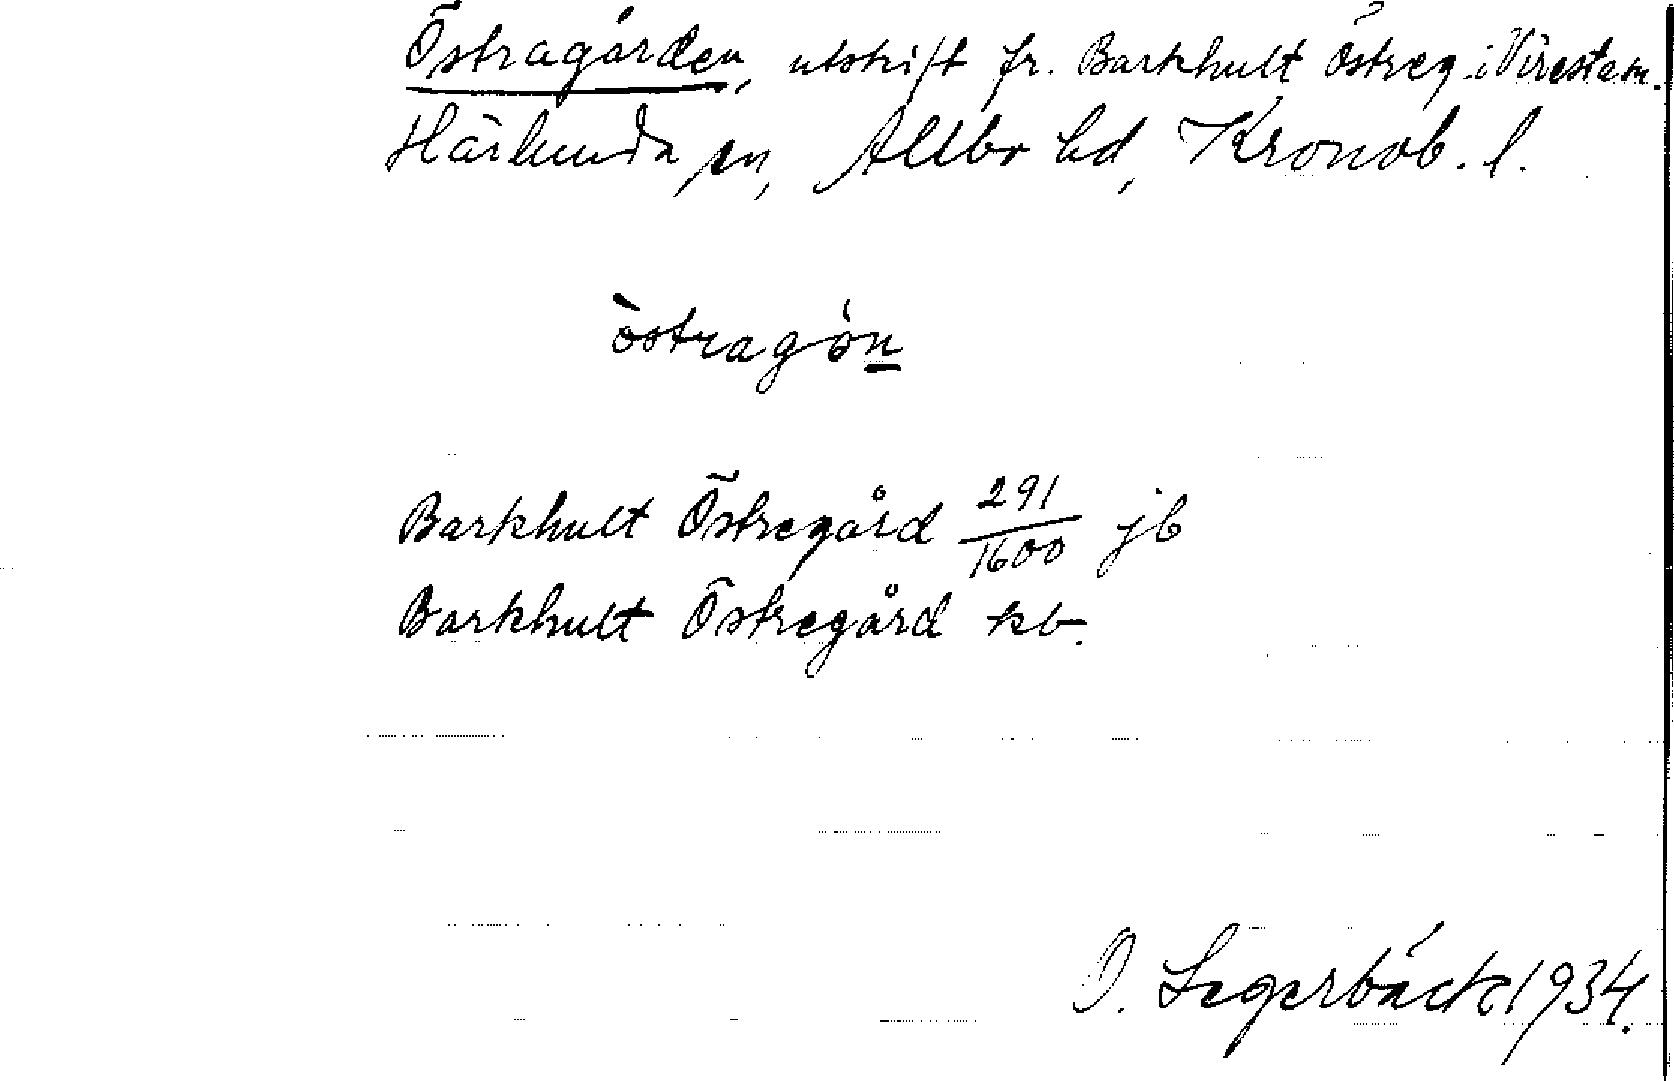 Östragården, utskrift fr. Barkhult Östreg. i Virestam.
Härlunda sn, Allbo hd, Kronob. l.
òstragón
Barkhult Östregård 291/1600 jb
Barkhult Östregård kb.
O. Segerbäck 1934.